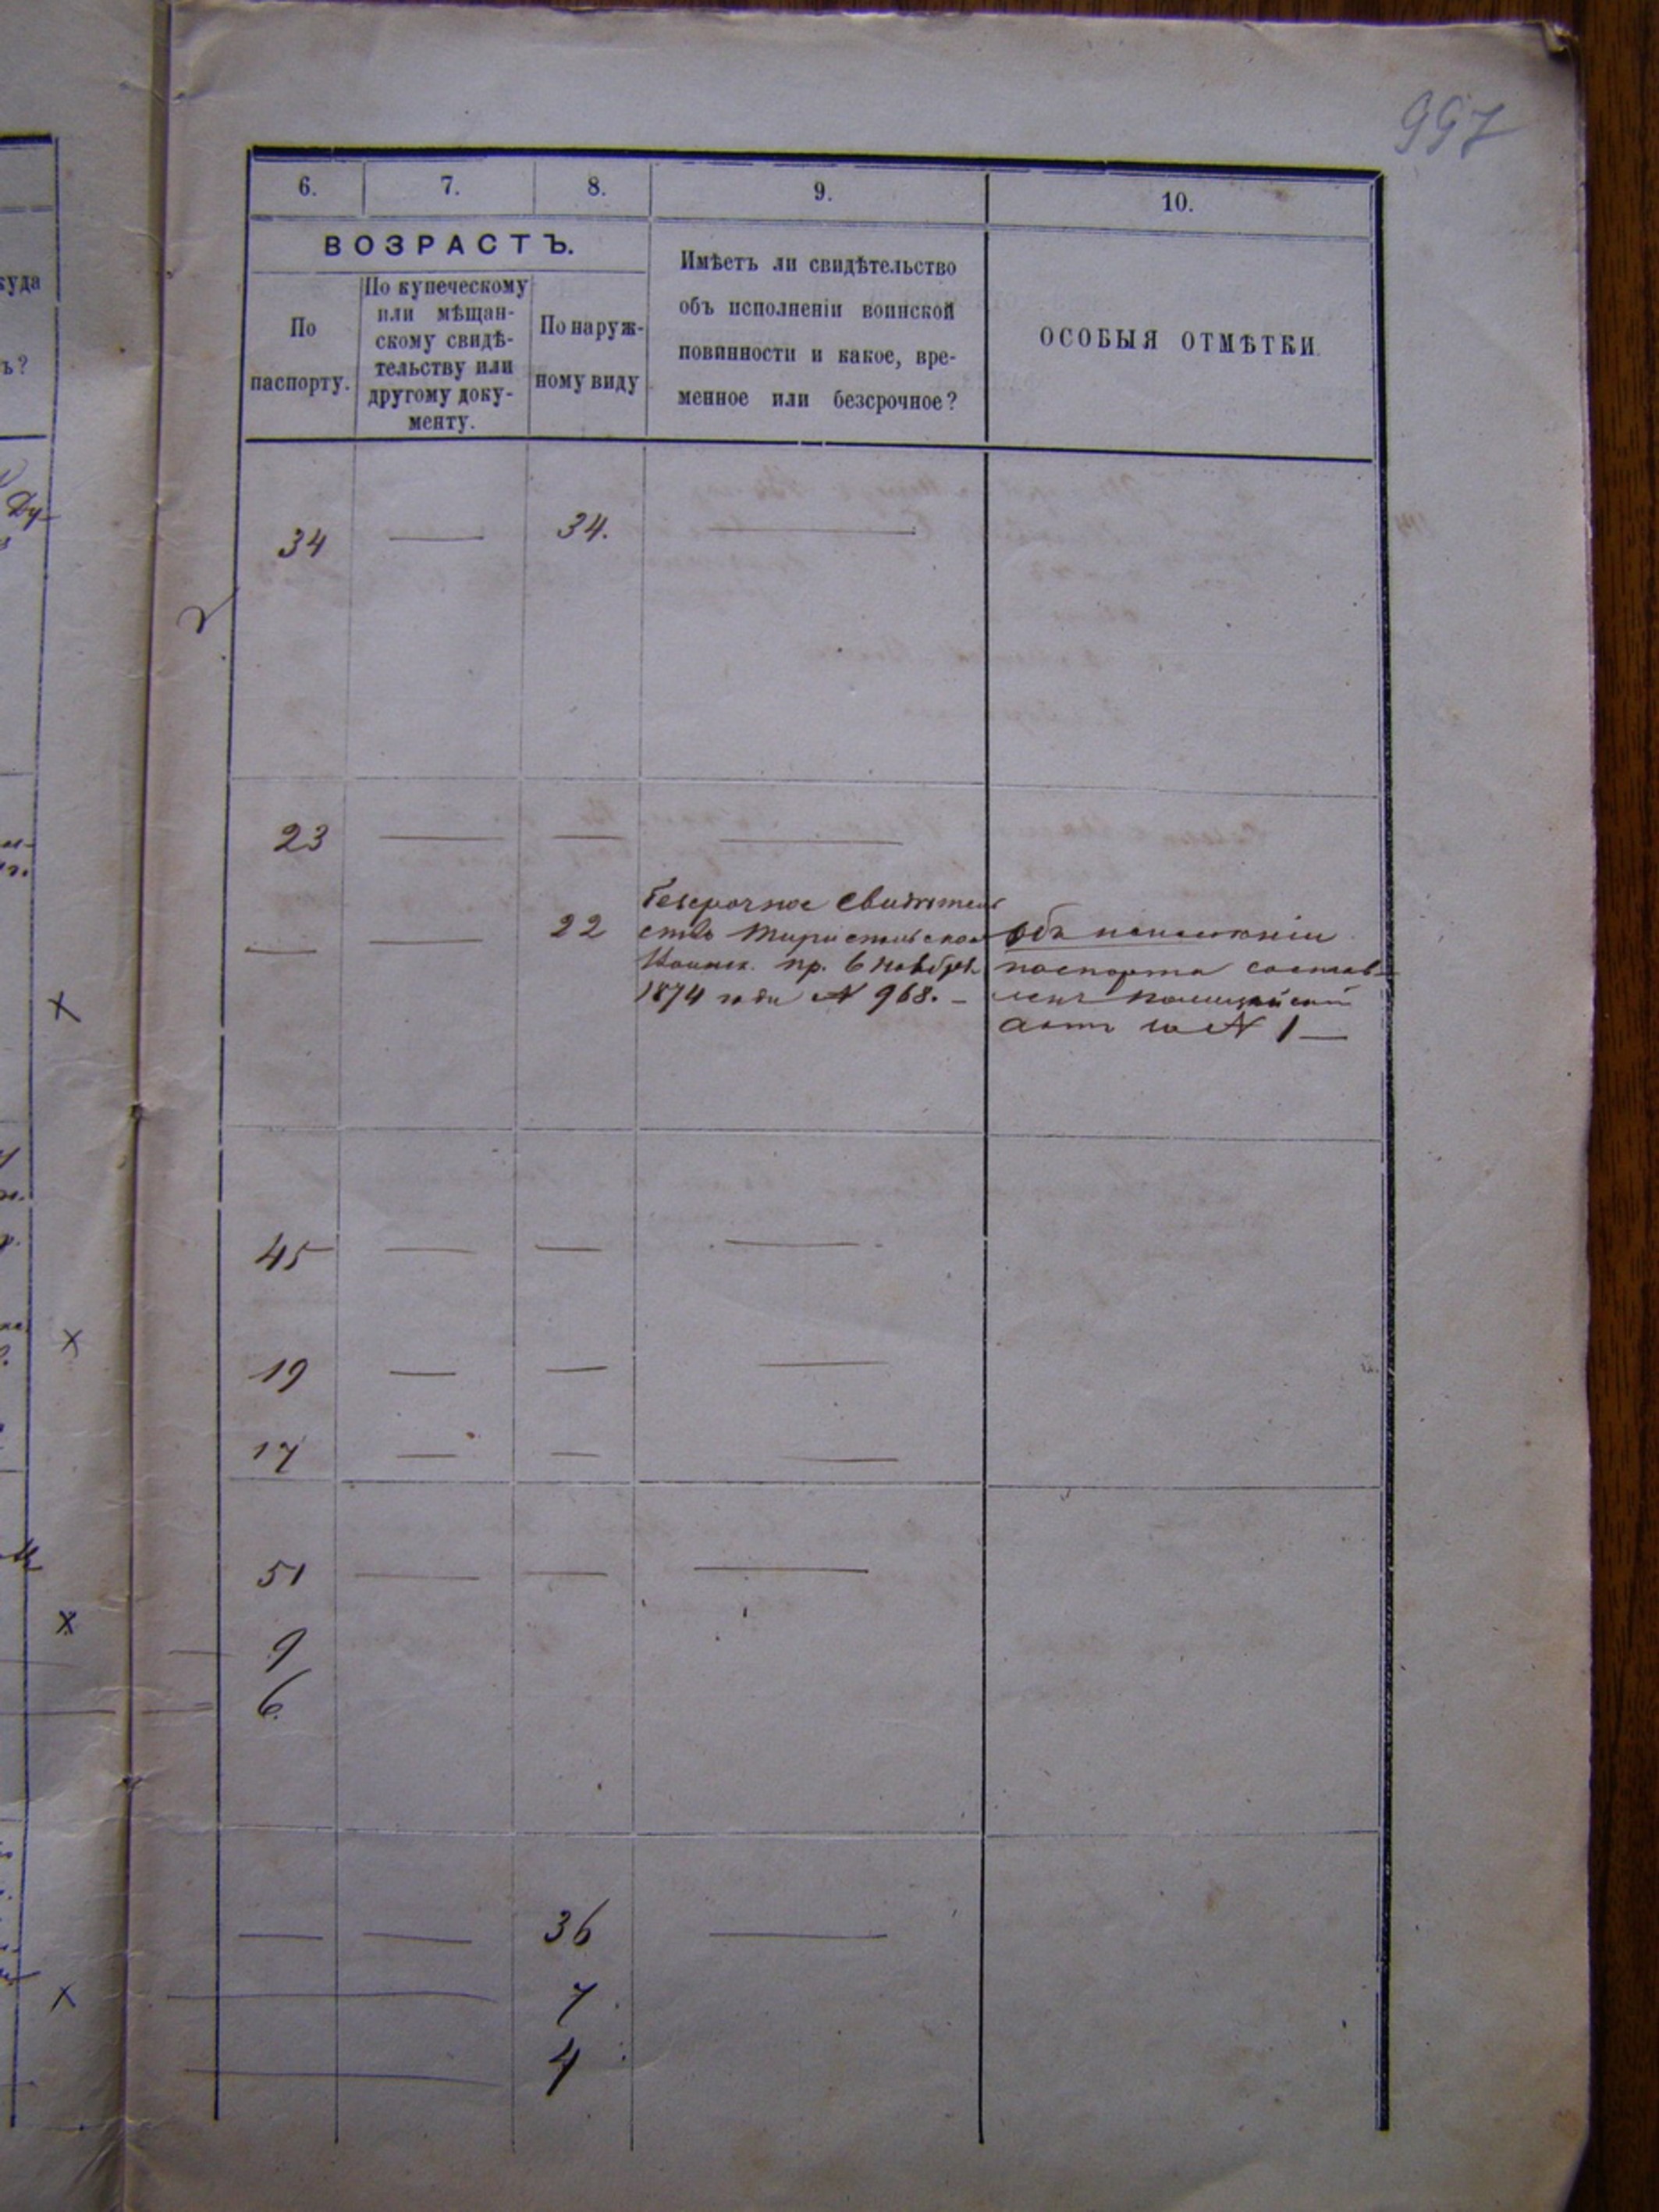 997
6. 7. 8. 9. 10.
ВОЗРАСТЪ.
По
паспорту.
По купеческому
или мѣщан-
скому свидѣ-
тельству или
другому доку-
менту.
По наруж-
ному виду
Имѣетъ ли свидѣтельство
объ исполненіи воинской
повинности и какое, вре-
менное или безсрочное?
ОСОБЫЯ ОТМѢТКИ.
куда
ъ?
Ду-
34 — 34. —
23 — — —
— — 22
Безсрочное Свидѣтель
ство
пр. 6 Ноября
1874 года № 968. —
объ
паспорта состав-
ленъ полицейскій
актъ за № 1 —
45 — — —
19 — — —
17 — — —
51 — — —
9
6.
— — 36 —
7
4